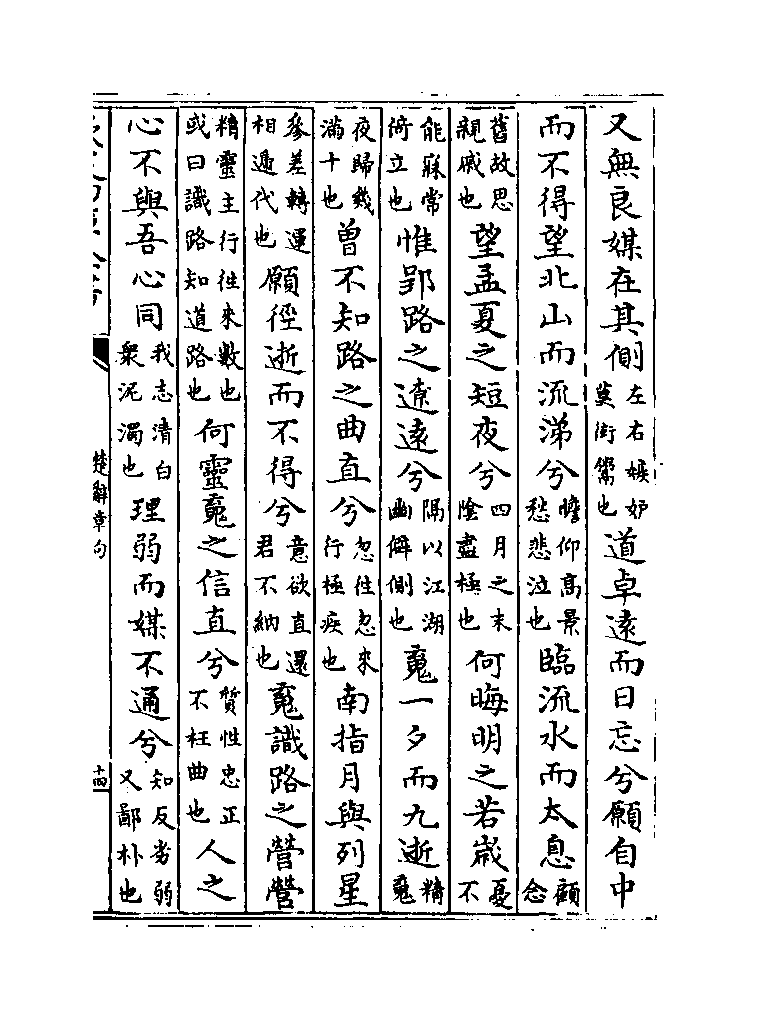 又無良媒在其側左右嫉妒莫衒鬻也道卓遠而日忘兮願自中
而不得望北山而流涕兮瞻仰高景愁悲泣也臨流水而太息顧念
舊故思親戚也望孟夏之短夜兮四月之末陰盡極也何晦明之若歲憂不
能寐常倚立也惟郢路之遼遠兮隔以江湖幽僻側也䰟一夕而九逝精䰟
夜歸幾滿十也曾不知路之曲直兮忽往忽來行極疾也南指月與列星
參差轉運相遞代也願徑逝而不得兮意欲直還君不納也䰟識路之營營
精靈主行往來數也或曰識路知道路也何靈䰟之信直兮質性忠正不枉曲也人之
心不與吾心同我志清白衆泥濁也理弱而媒不通兮知友劣弱又鄙朴也
楚辭章句
十四